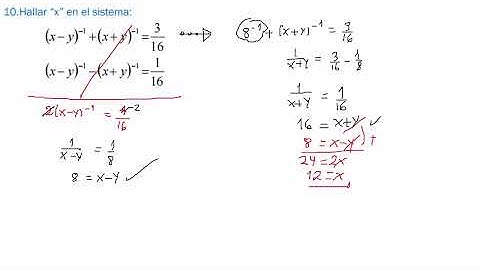 10.Hallar "x" en el sistema:
(x−y)⁻¹+(x+y)⁻¹=3/16
(x−y)⁻¹−(x+y)⁻¹=1/16
2(x-y)⁻¹ = 4/16 -2
1/(x-y) = 1/8
8 = x-y
8⁻¹ + (x+y)⁻¹ = 3/16
1/(x+y) = 3/16 - 1/8
1/(x+y) = 1/16
16 = x+y
8 = x-y +
24 = 2x
12 = x